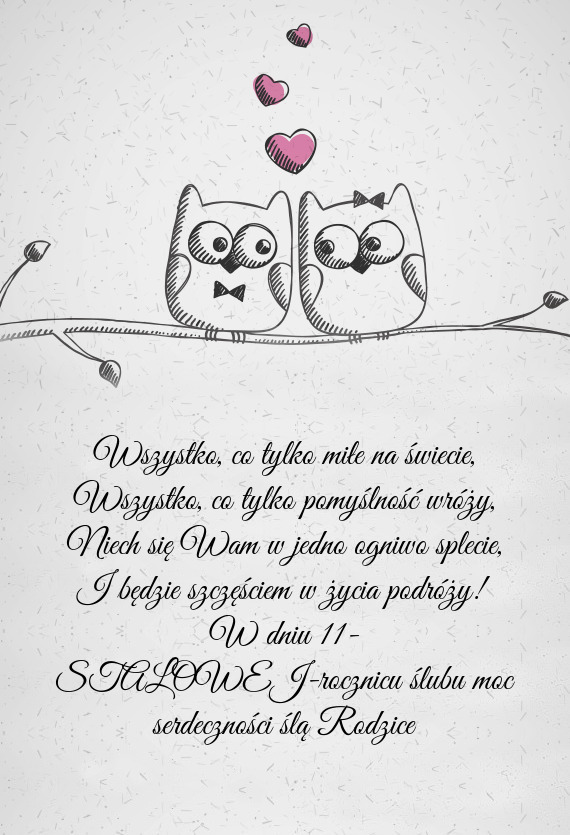 Wszystko, co tylko miłe na świecie,
Wszystko, co tylko pomyślność wróży,
Niech się Wam w jedno ogniwo splecie,
I będzie szczęściem w życia podróży!
W dniu 11-
STALOWEJ-rocznicu ślubu moc
serdeczności ślą Rodzice